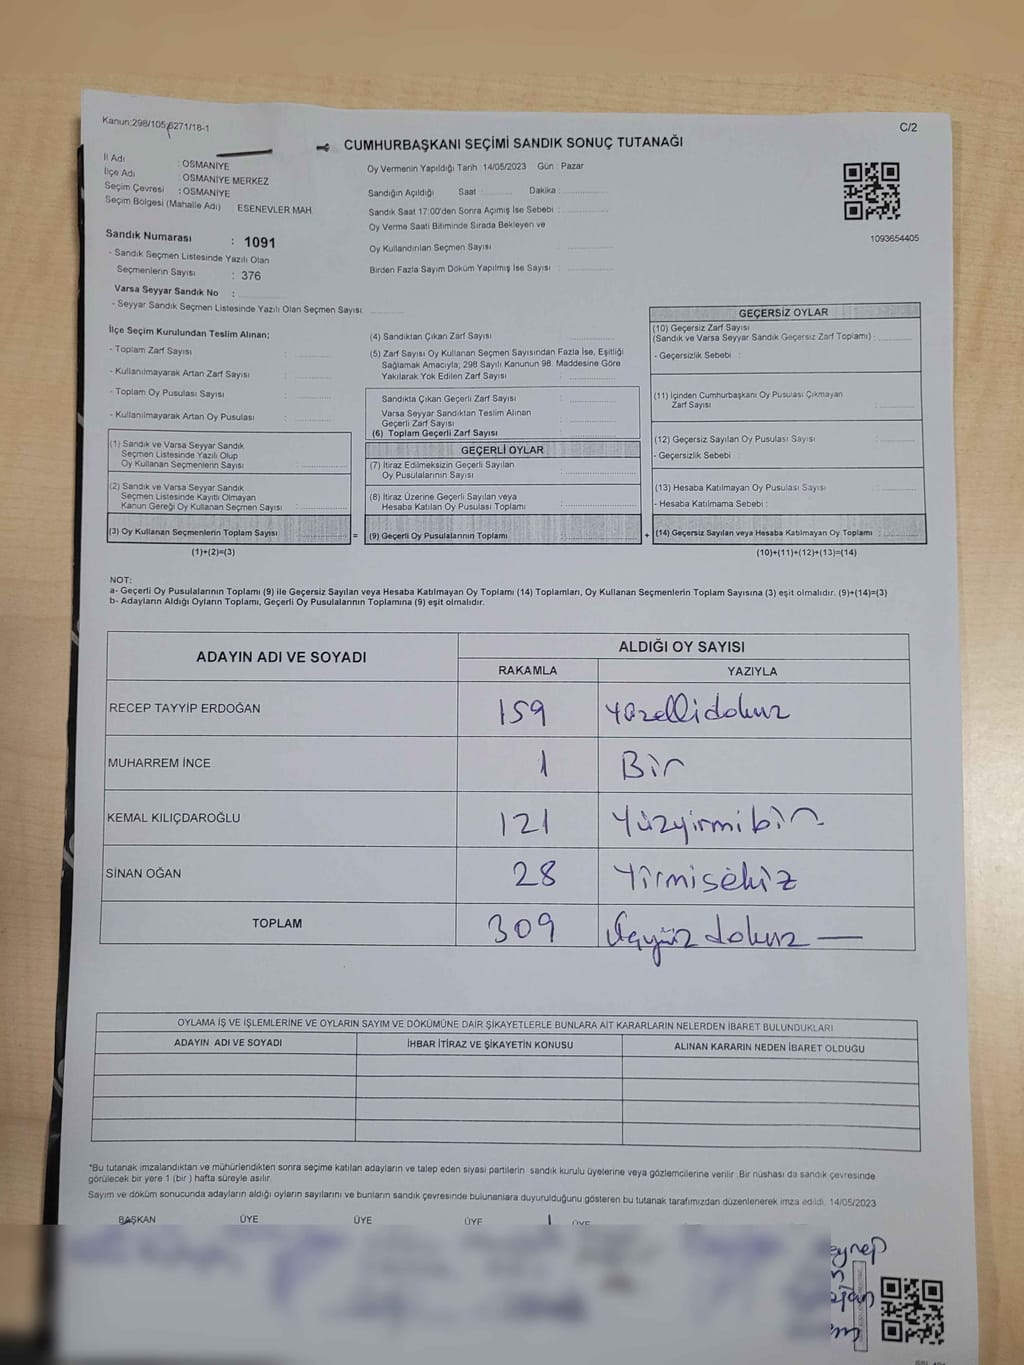 Kanun:298/105,6271/18-1
C/2
CUMHURBAŞKANI SEÇİMİ SANDIK SONUÇ TUTANAĞI
İl Adı : OSMANİYE
İlçe Adı : OSMANİYE MERKEZ
Seçim Çevresi : OSMANİYE
Seçim Bölgesi (Mahalle Adı) : ESENEVLER MAH
Sandık Numarası : 1091
- Sandık Seçmen Listesinde Yazılı Olan
Seçmenlerin Sayısı : 376
Varsa Seyyar Sandık No :
- Seyyar Sandık Seçmen Listesinde Yazılı Olan Seçmen Sayısı:
Oy Vermenin Yapıldığı Tarih :14/05/2023 Gün : Pazar
Sandığın Açıldığı Saat : Dakika :
Sandık Saat 17:00'den Sonra Açımış İse Sebebi :
Oy Verme Saati Bitiminde Sırada Bekleyen ve
Oy Kullandırılan Seçmen Sayısı :
Birden Fazla Sayım Döküm Yapılmış İse Sayısı :
1093654405
İlçe Seçim Kurulundan Teslim Alınan;
- Toplam Zarf Sayısı :
- Kullanılmayarak Artan Zarf Sayısı :
- Toplam Oy Pusulası Sayısı :
- Kullanılmayarak Artan Oy Pusulası :
(1) Sandık ve Varsa Seyyar Sandık
Seçmen Listesinde Yazılı Olup
Oy Kullanan Seçmenlerin Sayısı :
(2) Sandık ve Varsa Seyyar Sandık
Seçmen Listesinde Kayıtlı Olmayan
Kanun Gereği Oy Kullanan Seçmen Sayısı :
(3) Oy Kullanan Seçmenlerin Toplam Sayısı :
(1)+(2)=(3)
(4) Sandıktan Çıkan Zarf Sayısı :
(5) Zarf Sayısı Oy Kullanan Seçmen Sayısından Fazla İse, Eşitliği
Sağlamak Amacıyla; 298 Sayılı Kanunun 98. Maddesine Göre
Yakılarak Yok Edilen Zarf Sayısı :
Sandıkta Çıkan Geçerli Zarf Sayısı :
Varsa Seyyar Sandıktan Teslim Alınan
Geçerli Zarf Sayısı :
(6) Toplam Geçerli Zarf Sayısı :
GEÇERLİ OYLAR
(7) İtiraz Edilmeksizin Geçerli Sayılan
Oy Pusulalarının Sayısı :
(8) İtiraz Üzerine Geçerli Sayılan veya
Hesaba Katılan Oy Pusulası Toplamı :
= (9) Geçerli Oy Pusulalarının Toplamı :
GEÇERSİZ OYLAR
(10) Geçersiz Zarf Sayısı
(Sandık ve Varsa Seyyar Sandık Geçersiz Zarf Toplamı) :
- Geçersizlik Sebebi :
(11) İçinden Cumhurbaşkanı Oy Pusulası Çıkmayan
Zarf Sayısı :
(12) Geçersiz Sayılan Oy Pusulası Sayısı :
- Geçersizlik Sebebi :
(13) Hesaba Katılmayan Oy Pusulası Sayısı :
- Hesaba Katılmama Sebebi :
+ (14) Geçersiz Sayılan veya Hesaba Katılmayan Oy Toplamı :
(10)+(11)+(12)+(13)=(14)
NOT:
a- Geçerli Oy Pusulalarının Toplamı (9) ile Geçersiz Sayılan veya Hesaba Katılmayan Oy Toplamı (14) Toplamları, Oy Kullanan Seçmenlerin Toplam Sayısına (3) eşit olmalıdır. (9)+(14)=(3)
b- Adayların Aldığı Oyların Toplamı, Geçerli Oy Pusulalarının Toplamına (9) eşit olmalıdır.
ADAYIN ADI VE SOYADI
ALDIĞI OY SAYISI
RAKAMLA YAZIYLA
RECEP TAYYİP ERDOĞAN 159 Yüzellidokuz
MUHARREM İNCE 1 Bir
KEMAL KILIÇDAROĞLU 121 Yüzyirmibir
SİNAN OĞAN 28 Yirmisekiz
TOPLAM 309 Üçyüz dokuz —
OYLAMA İŞ VE İŞLEMLERİNE VE OYLARIN SAYIM VE DÖKÜMÜNE DAİR ŞİKAYETLERLE BUNLARA AİT KARARLARIN NELERDEN İBARET BULUNDUKLARI
ADAYIN ADI VE SOYADI İHBAR İTİRAZ VE ŞİKAYETİN KONUSU ALINAN KARARIN NEDEN İBARET OLDUĞU
*Bu tutanak imzalandıktan ve mühürlendikten sonra seçime katılan adayların ve talep eden siyasi partilerin sandık kurulu üyelerine veya gözlemcilerine verilir. Bir nüshası da sandık çevresinde
görülecek bir yere 1 (bir) hafta süreyle asılır.
Sayım ve döküm sonucunda adayların aldığı oyların sayılarını ve bunların sandık çevresinde bulunanlara duyurulduğunu gösteren bu tutanak tarafımızdan düzenlenerek imza edildi. 14/05/2023
BAŞKAN ÜYE ÜYE ÜYE ÜYE